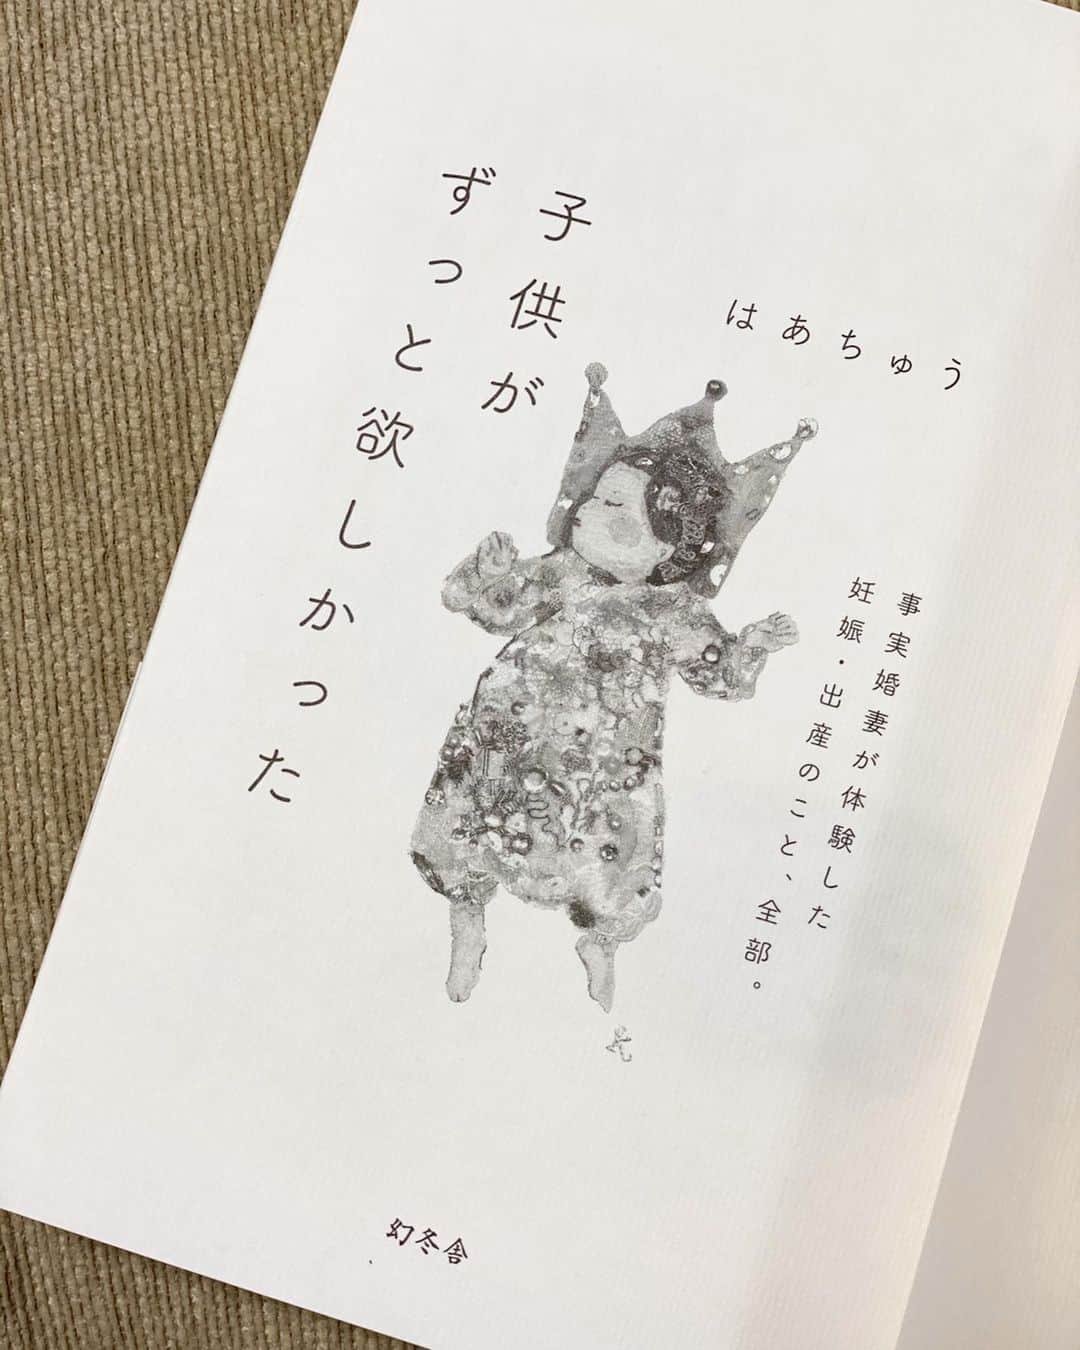 はあちゅう
子供が
ずっと欲しかった
事実婚妻が体験した
妊娠・出産のこと、全部。
幻冬舎